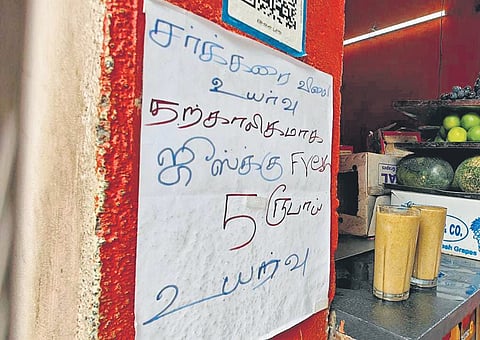 சர்க்கரை விலை
உயர்வு
தற்காலிகமாக
ஜூஸ்க்கு
5 ரூபாய்
உயர்வு
& CO.
esh Grapes